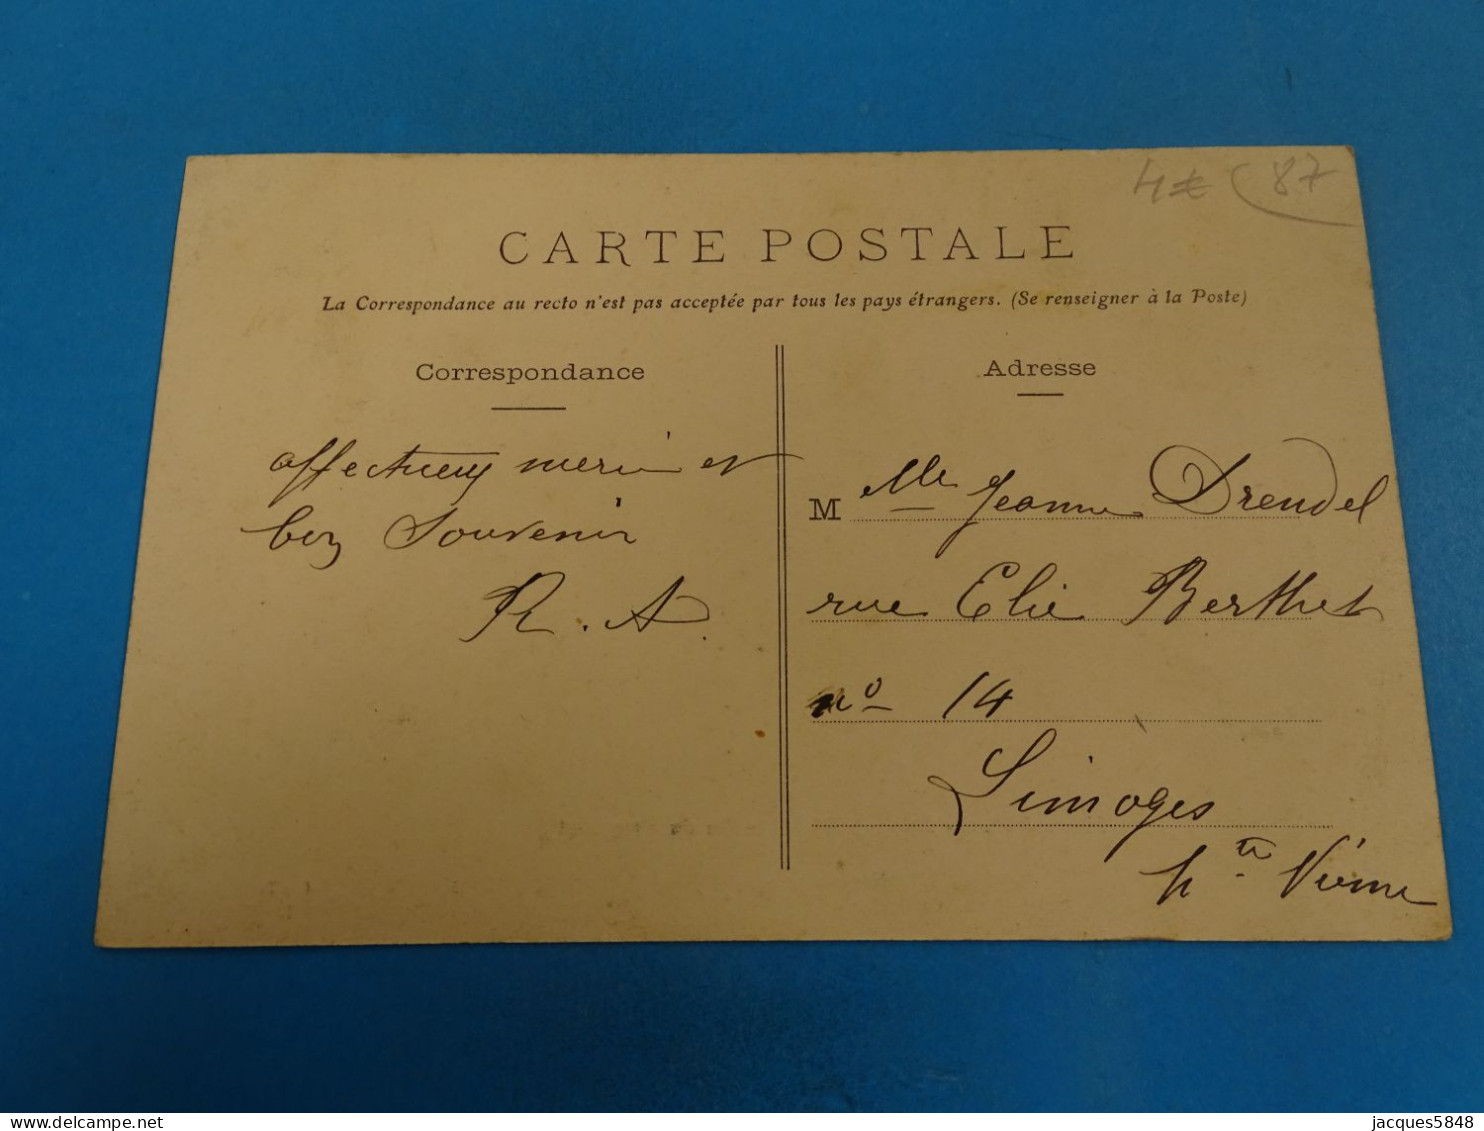 4€ 87
CARTE POSTALE
La Correspondance au recto n'est pas acceptée par tous les pays étrangers. (Se renseigner à la Poste)
Correspondance
affectueux merci et
bon Souvenir
R. A.
Adresse
M Mlle Jeanne Drendel
rue Elie Berthet
no 14
Limoges
hte Vienne
jacques5848